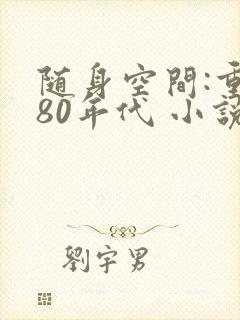 随身空間:重
80年代 小說
劉宇男